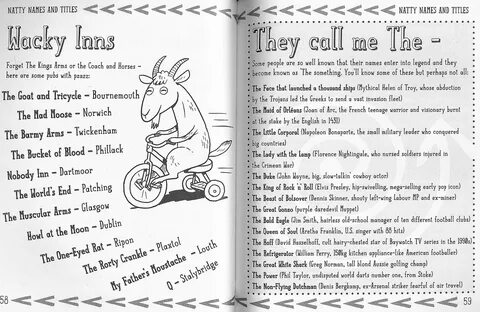 NATTY NAMES AND TITLES
Wacky Inns
Forget The Kings Arms or the Coach and Horses –
here are some pubs with pzazz:
The Goat and Tricycle – Bournemouth
The Mad Moose – Norwich
The Barmy Arms – Twickenham
The Bucket of Blood – Phillack
Nobody Inn – Dartmoor
The World's End – Patching
The Muscular Arms – Glasgow
Howl at the Moon – Dublin
The One-Eyed Rat – Ripon
The Rorty Crankle – Plaxtol
My Father's Moustache – Louth
Q – Stalybridge
58
NATTY NAMES AND TITLES
They call me The –
Some people are so well known that their names enter into legend and they
become known as 'The something. You'll know some of these but perhaps not all:
The Face that launched a thousand ships (Mythical Helen of Troy, whose abduction
by the Trojans led the Greeks to send a vast invasion fleet)
The Maid of Orléans (Joan of Arc, the French teenage warrior and visionary burnt
at the stake by the English in 1431)
The Little Corporal (Napoleon Bonaparte, the small military leader who conquered
big countries)
The Lady with the Lamp (Florence Nightingale, who nursed soldiers injured in
the Crimean War)
The Duke (John Wayne, big, slow-talkin' cowboy actor)
The King of Rock 'n' Roll (Elvis Presley, hip-swivelling, mega-selling early pop icon)
The Beast of Bolsover (Dennis Skinner, shouty left-wing Labour MP and ex-miner)
The Great Gonzo (purple daredevil Muppet)
The Bald Eagle (Jim Smith, hairless old-school manager of ten different football clubs)
The Queen of Soul (Aretha Franklin, U.S. singer with 88 hits)
The Hoff (David Hasselhoff, cult hairy-chested star of Baywatch TV series in the 1990s)
The Refrigerator (William Perry, 159kg kitchen appliance-like American footballer)
The Great White Shark (Greg Norman, tall blond Aussie golfing champ)
The Power (Phil Taylor, undisputed world darts number one, from Stoke)
The Non-Flying Dutchman (Denis Bergkamp, ex-Arsenal striker fearful of air travel)
59